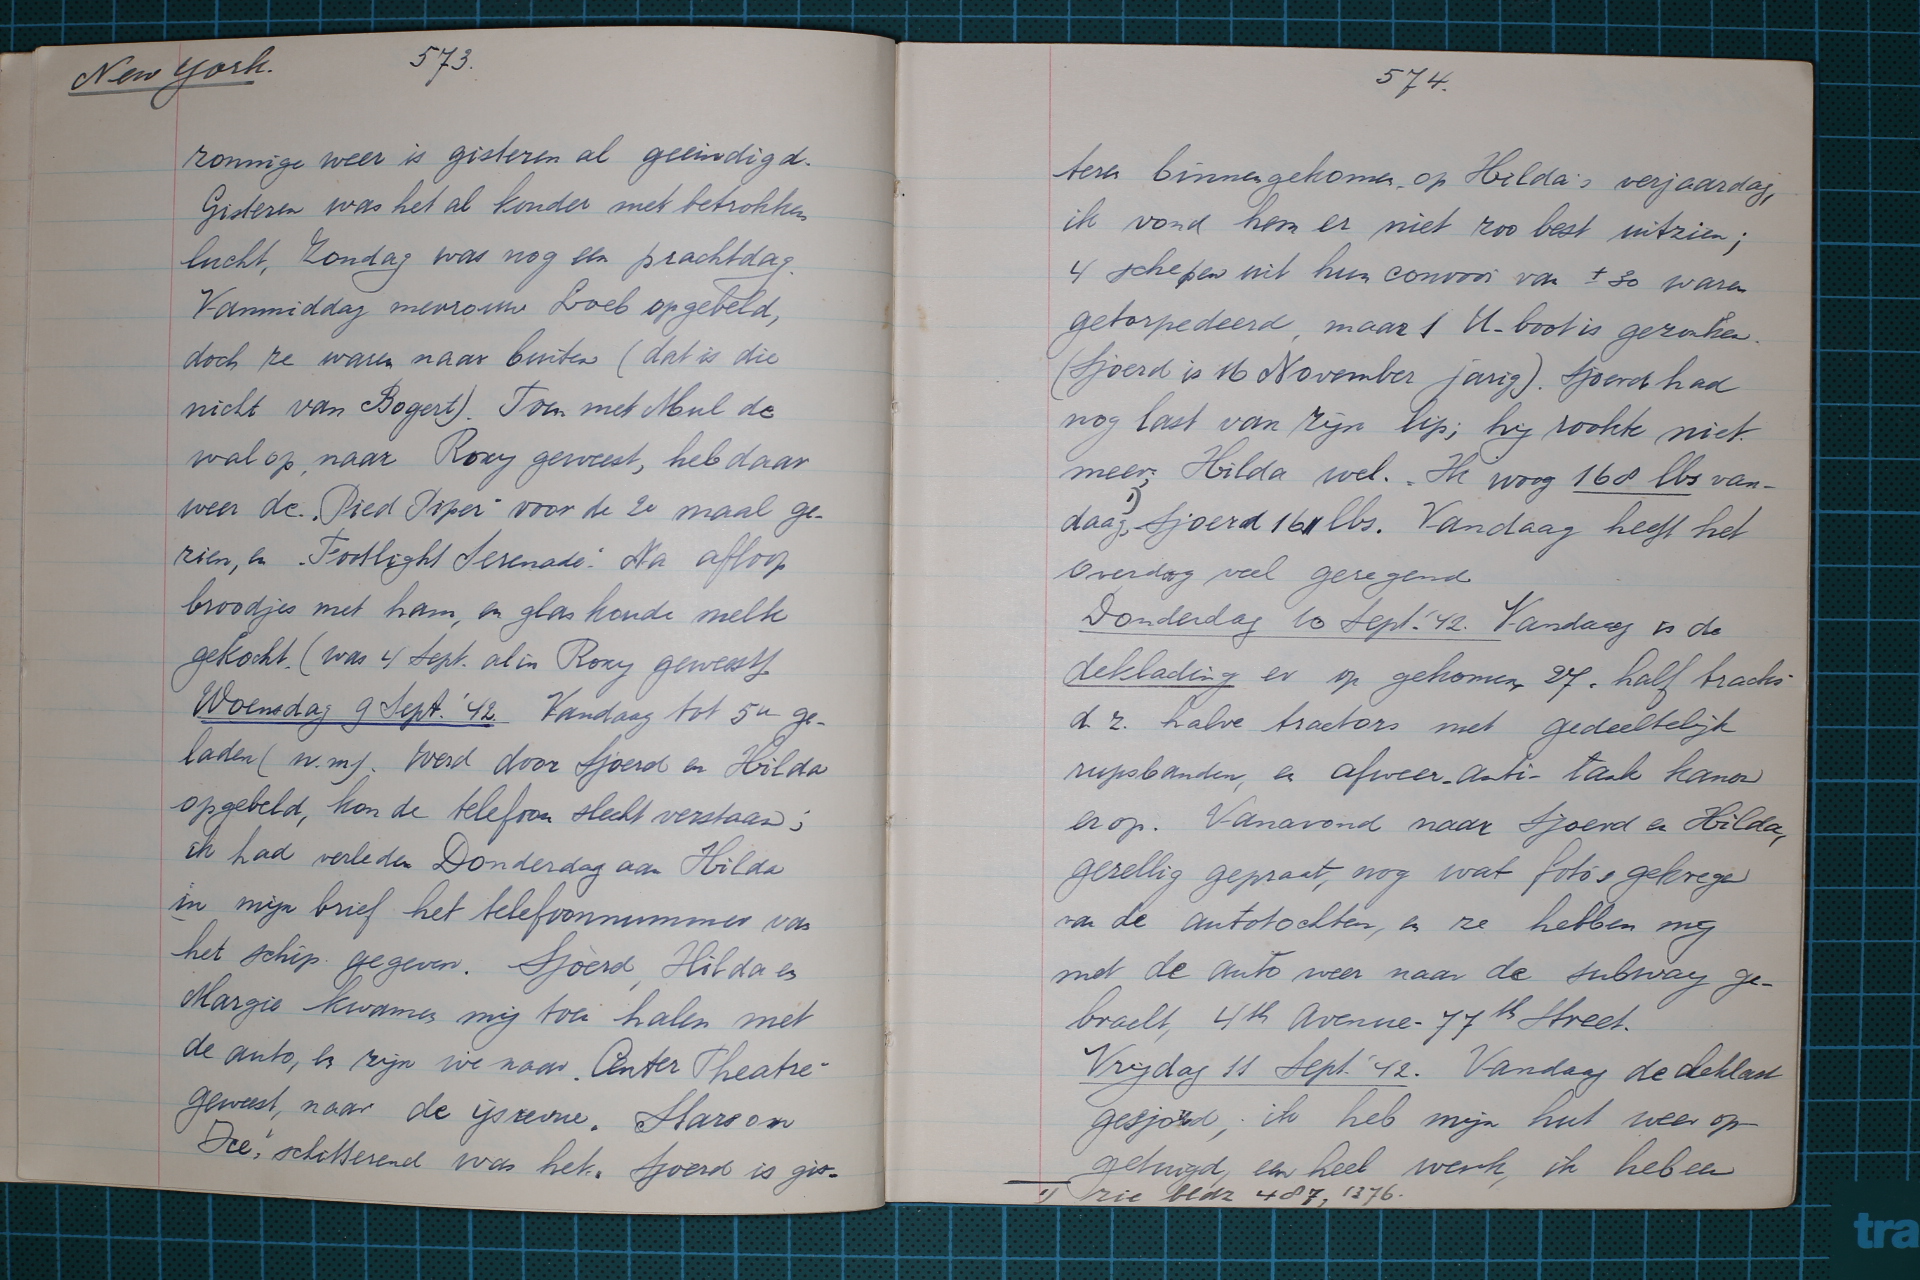 New York.
573.
zonnige weer is gisteren al geeindigd.
Gisteren was het al kouder met betrokken
lucht, Zondag was nog een prachtdag.
Vanmiddag mevrouw Loeb opgebeld,
doch ze waren naar buiten (dat is die
nicht van Bogert). Toen met Mul de
wal op, naar Roxy geweest, heb daar
weer de "Pied Piper" voor de 2e maal ge-
zien, en "Footlight Serenade". Na afloop
broodjes met ham, en glas koude melk
gekocht. (was 4 Sept. al in Roxy geweest)
Woensdag 9 Sept. '42. Vandaag tot 5u ge-
laden (n.m). Werd door Sjoerd en Hilda
opgebeld, kon de telefoon slecht verstaan;
ik had verleden Donderdag aan Hilda
in mijn brief het telefoonnummer van
het schip gegeven. Sjoerd, Hilda en
Margie kwamen mij toen halen met
de auto, en zijn we naar "Center Theatre"
geweest, naar de ijsrevue "Stars on
Ice", schitterend was het. Sjoerd is gis-
574.
teren binnengekomen, op Hilda's verjaardag,
ik vond hem er niet zoo best uitzien;
4 schepen uit hun convooi van ± 30 waren
getorpedeerd, maar 1 U-boot is gezonken.
(Sjoerd is 16 November jarig). Sjoerd had
nog last van zijn lip; hij rookte niet
meer; Hilda wel. Ik woog 168 lbs van-
daag, 1) Sjoerd 161 lbs. Vandaag heeft het
overdag veel geregend.
Donderdag 10 Sept. '42. Vandaag is de
deklading er op gekomen, 27 "half tracks"
d.z. halve tractors met gedeeltelijk
rupsbanden, en afweer-anti-tank kanon
er op. Vanavond naar Sjoerd en Hilda,
gezellig gepraat, nog wat foto's gekregen
van de autotochten, en ze hebben mij
met de auto weer naar de subway ge-
bracht, 4th Avenue - 77th Street.
Vrijdag 11 Sept. '42. Vandaag de deklast
gesjord, ik heb mijn hut weer op-
getuigd, een heel werk, ik heb een
1) zie bldz 487, 1376.
tra